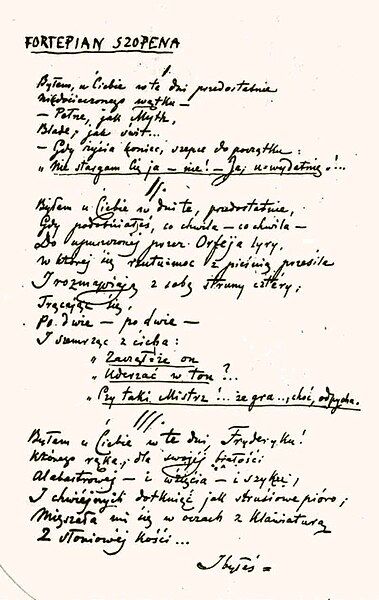 FORTEPIAN SZOPENA
I.
Byłem u Ciebie w te dni przedostatnie
Niedocieczonego wątku —
— Pełne, jak Myth,
Blade, jak świt...
— Gdy życia koniec, szepce do początku:
„Nie stargam Cię ja — nie! — Ja, uwydatnię!...
II.
Byłem u Ciebie w dni te, przedostatnie,
Gdy podobniałeś, co chwila — co chwila —
Do upuszczonej przez Orfeja liry,
W której się rzutu-moc z pieśnią przesila
I rozmawiają z sobą struny cztéry,
Trącając się,
Po dwie — po dwie —
I szemrząc z cicha:
„Zacząłże on
„Uderzać w ton?...
„Czy taki Mistrz!... że gra..., choć, odpycha.
III.
Byłem u Ciebie w te dni, Fryderyku!
Którego ręka, dla swojej białości
Alabastrowej — i wzięcia — i szyku,
I chwiejnych dotknięć jak strusiowe pióro;
Mięszała mi się w oczach z klawiaturą
Z słoniowej kości...
I byłeś =